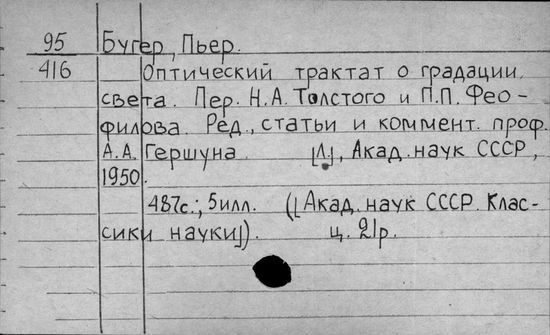 95 Бугер, Пьер.
416 Оптический трактат о градации
света. Пер. Н.А. Толстого и П.П. Фео-
филова. Ред., статьи и коммент. проф.
А.А. Гершуна. [Л.], Акад. наук СССР,
1950.
487с.; 5илл. ([Акад. наук СССР. Клас-
сики науки]). ц. 21р.